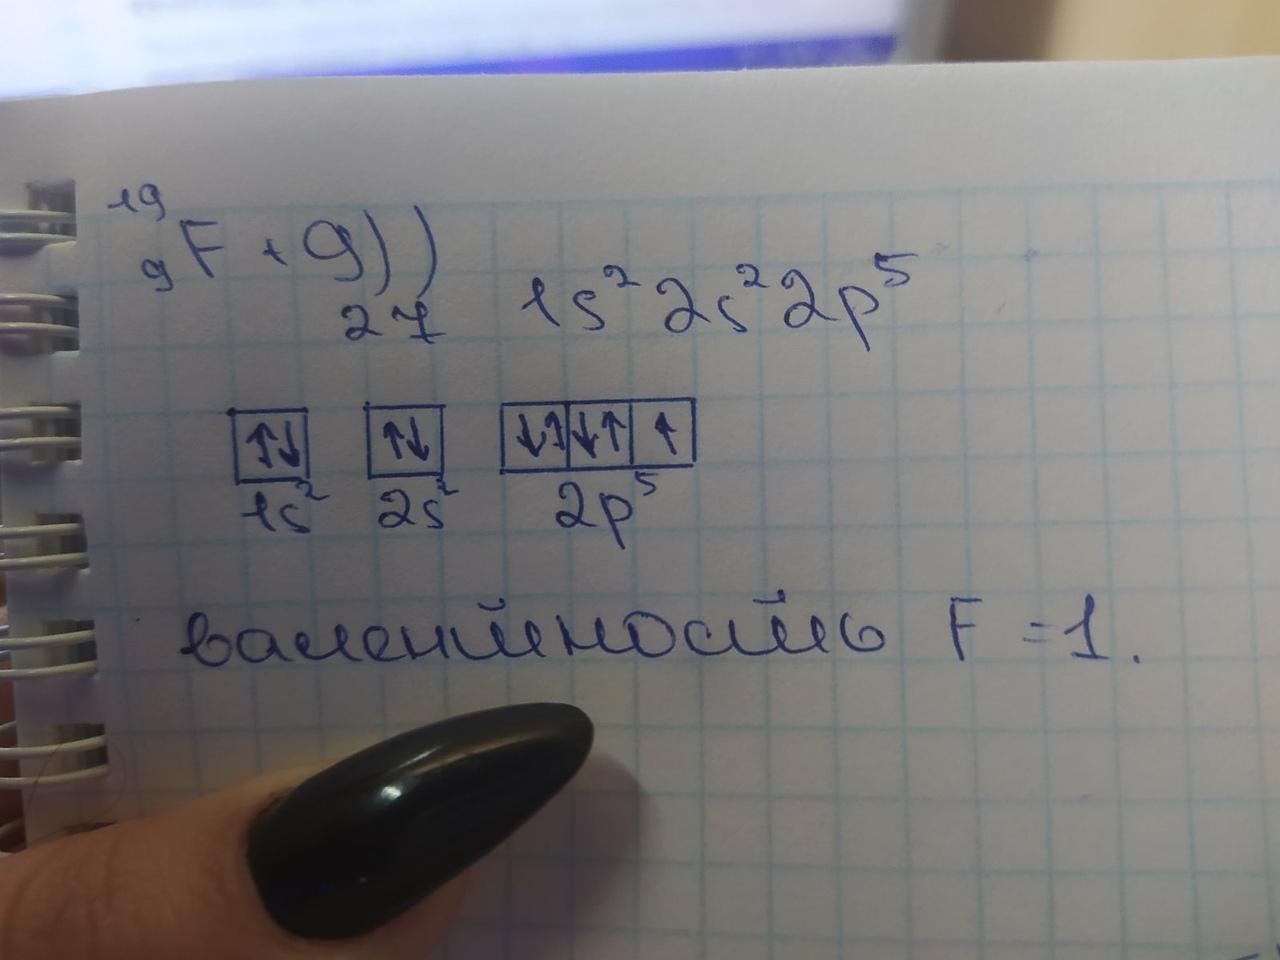 19
9 F +9))
27 1s² 2s² 2p⁵
↑↓ ↑↓ ↓↑ ↓↑ ↑
1s² 2s² 2p⁵
валентность F = 1.